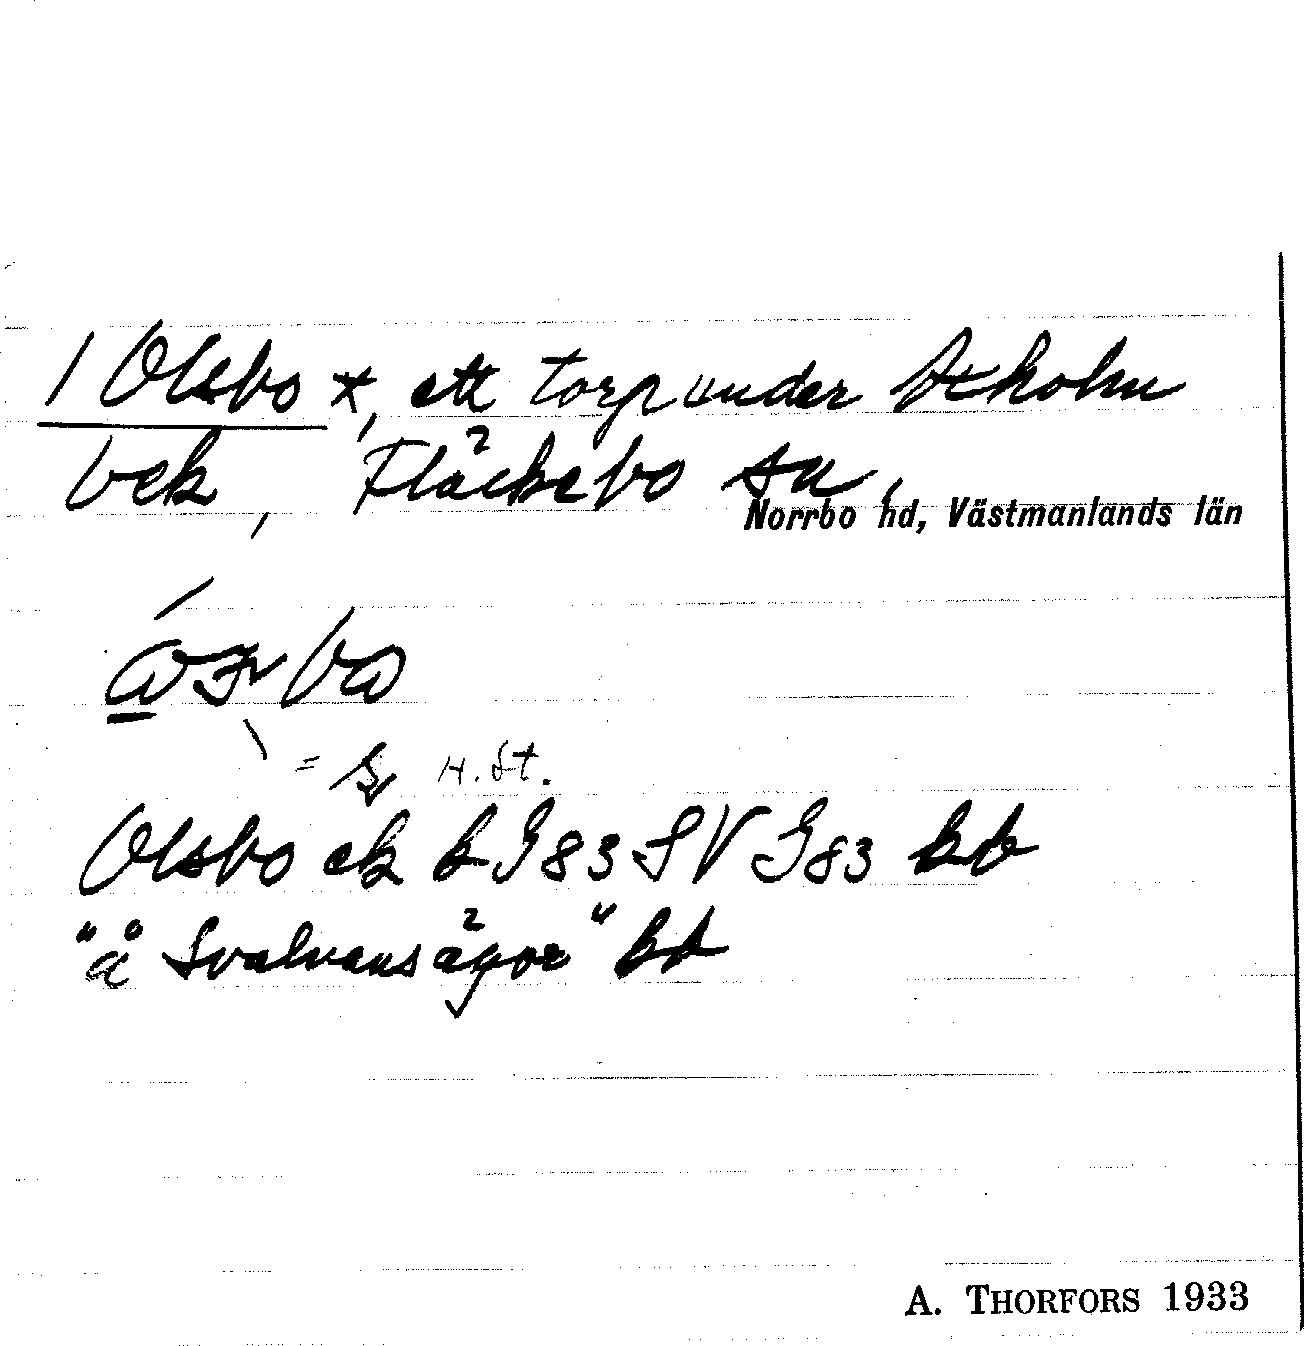 1 Olsbo x, ett torp under Stkolm
bek, Fläckebo sn,
Norrbo hd, Västmanlands län
= H. St.
Olsbo ek k G 83 SV G 83 bb
"å Svalvensägor" bb
A. THORFORS 1933